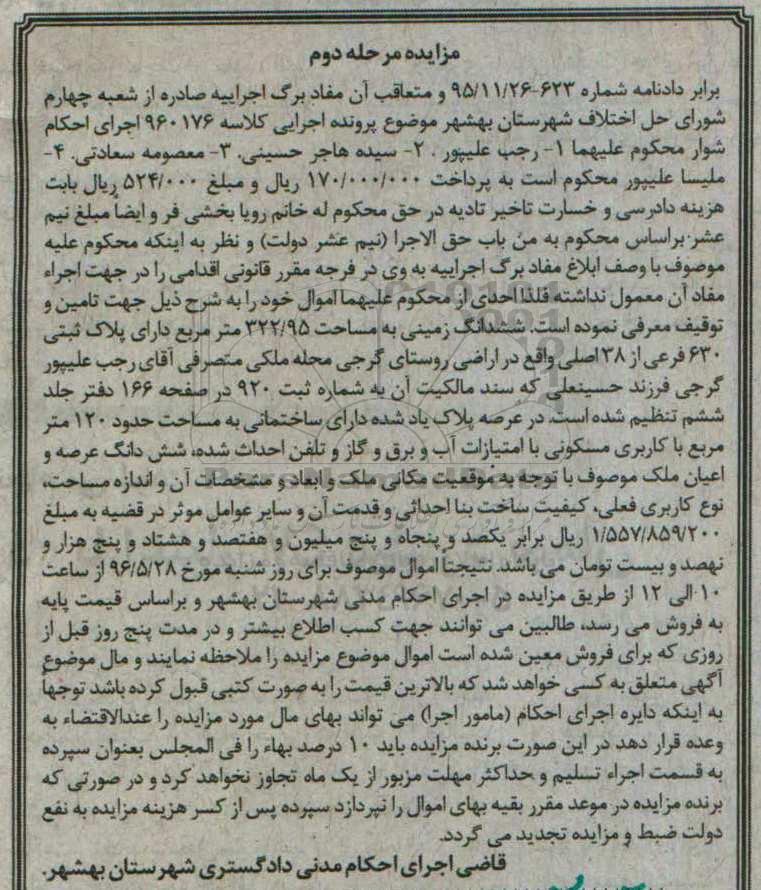 مزایده مرحله دوم
برابر دادنامه شماره ۶۲۳-۹۵/۱۱/۲۶ و متعاقب آن مفاد برگ اجراییه صادره از شعبه چهارم
شورای حل اختلاف شهرستان بهشهر موضوع پرونده اجرایی کلاسه ۹۶۰۱۷۶ اجرای احکام
شوار محکوم علیهما ۱- رجب علیپور . ۲- سیده هاجر حسینی. ۳- معصومه سعادتی. ۴-
ملیسا علیپور محکوم است به پرداخت ۱۷۰/۰۰۰/۰۰۰ ریال و مبلغ ۵۲۴/۰۰۰ ریال بابت
هزینه دادرسی و خسارت تاخیر تادیه در حق محکوم له خانم رویا بخشی فر و ایضا مبلغ نیم
عشر. براساس محکوم به من باب حق الاجرا (نیم عشر دولت) و نظر به اینکه محکوم علیه
موصوف با وصف ابلاغ مفاد برگ اجراییه به وی در فرجه مقرر قانونی اقدامی را در جهت اجراء
مفاد آن معمول نداشته فلذا احدی از محکوم علیهما اموال خود را به شرح ذیل جهت تامین و
توقیف معرفی نموده است. ششدانگ زمینی به مساحت ۳۲۲/۹۵ متر مربع دارای پلاک ثبتی
۶۳۰ فرعی از ۳۸ اصلی واقع در اراضی روستای گرجی محله ملکی متصرفی آقای رجب علیپور
گرجی فرزند حسینعلی که سند مالکیت آن به شماره ثبت ۹۲۰ در صفحه ۱۶۶ دفتر جلد
ششم تنظیم شده است. در عرصه پلاک یاد شده دارای ساختمانی به مساحت حدود ۱۲۰ متر
مربع با کاربری مسکونی با امتیازات آب و برق و گاز و تلفن احداث شده، شش دانگ عرصه و
اعیان ملک موصوف با توجه به موقعیت مکانی ملک و ابعاد و مشخصات آن و اندازه مساحت،
نوع کاربری فعلی، کیفیت ساخت بنا احداثی و قدمت آن و سایر عوامل موثر در قضیه به مبلغ
۱/۵۵۷/۸۵۹/۲۰۰ ریال برابر یکصد و پنجاه و پنج میلیون و هفتصد و هشتاد و پنج هزار و
نهصد و بیست تومان می باشد. نتیجتاً اموال موصوف برای روز شنبه مورخ ۹۶/۵/۲۸ از ساعت
۱۰ الی ۱۲ از طریق مزایده در اجرای احکام مدنی شهرستان بهشهر و براساس قیمت پایه
به فروش می رسد، طالبین می توانند جهت کسب اطلاع بیشتر و در مدت پنج روز قبل از
روزی که برای فروش معین شده است اموال موضوع مزایده را ملاحظه نمایند و مال موضوع
آگهی متعلق به کسی خواهد شد که بالاترین قیمت را به صورت کتبی قبول کرده باشد توجهاً
به اینکه دایره اجرای احکام (مامور اجرا) می تواند بهای مال مورد مزایده را عندالاقتضاء به
وعده قرار دهد در این صورت برنده مزایده باید ۱۰ درصد بهاء را فی المجلس بعنوان سپرده
به قسمت اجراء تسلیم و حداکثر مهلت مزبور از یک ماه تجاوز نخواهد کرد و در صورتی که
برنده مزایده در موعد مقرر بقیه بهای اموال را نپردازد سپرده پس از کسر هزینه مزایده به نفع
دولت ضبط و مزایده تجدید می گردد.
قاضی اجرای احکام مدنی دادگستری شهرستان بهشهر.